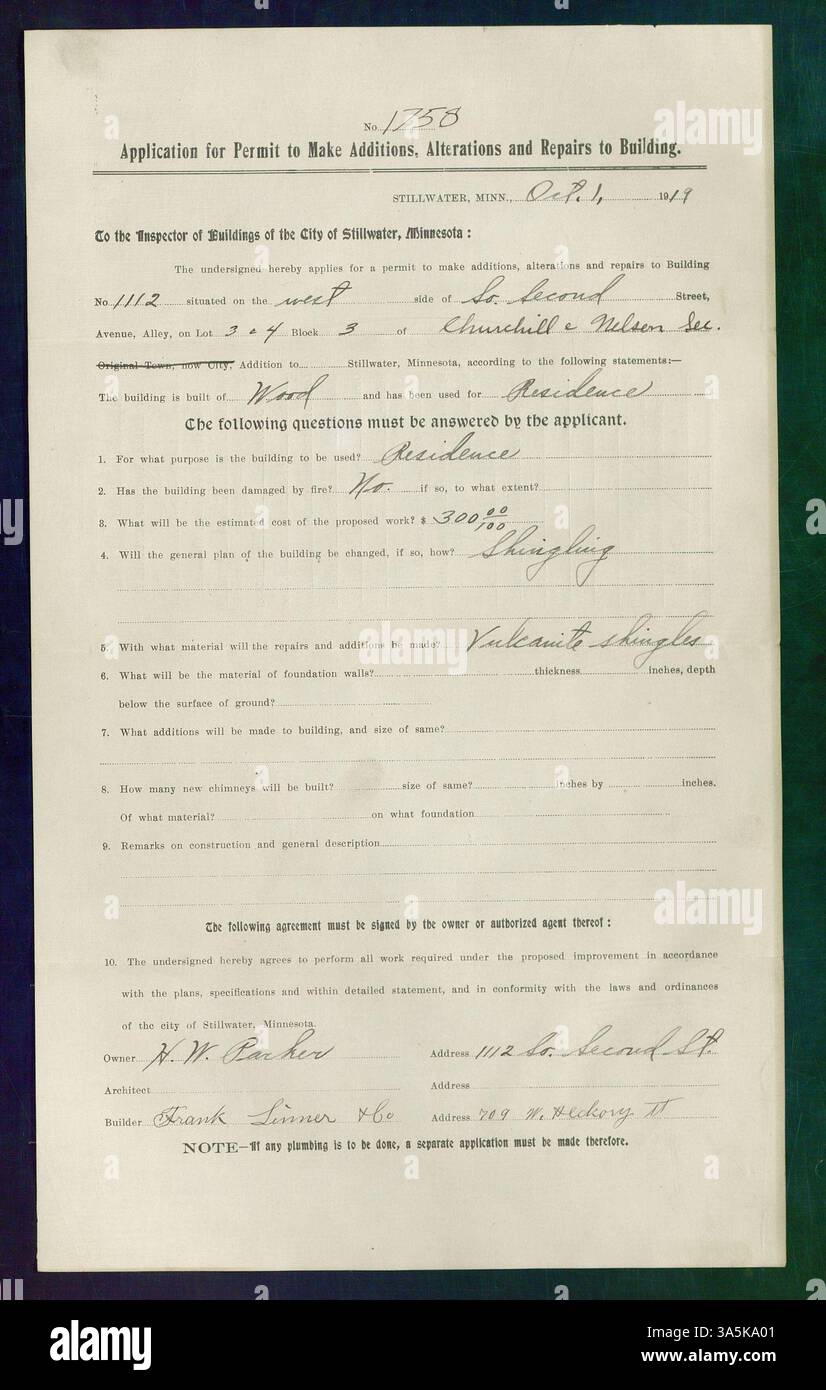 No. 1758
Application for Permit to Make Additions, Alterations and Repairs to Building.
STILLWATER, MINN., Oct. 1, 1919
To the Inspector of Buildings of the City of Stillwater, Minnesota:
The undersigned hereby applies for a permit to make additions, alterations and repairs to Building
No 1112 situated on the west side of So. Second Street,
Avenue, Alley, on Lot 3 & 4 Block 3 of Churchill & Nelson Sec.
Original Town, now City, Addition to Stillwater, Minnesota, according to the following statements:—
The building is built of Wood and has been used for Residence
The following questions must be answered by the applicant.
1. For what purpose is the building to be used? Residence
2. Has the building been damaged by fire? No. if so, to what extent?
3. What will be the estimated cost of the proposed work? $ 300 00/100
4. Will the general plan of the building be changed, if so, how? Shingling
5. With what material will the repairs and additions be made? Vulcanite shingles
6. What will be the material of foundation walls? thickness inches, depth
below the surface of ground?
7. What additions will be made to building, and size of same?
8. How many new chimneys will be built? size of same? inches by inches.
Of what material? on what foundation
9. Remarks on construction and general description
The following agreement must be signed by the owner or authorized agent thereof:
10. The undersigned hereby agrees to perform all work required under the proposed improvement in accordance
with the plans, specifications and within detailed statement, and in conformity with the laws and ordinances
of the city of Stillwater, Minnesota.
Owner H. W. Parker Address 1112 So. Second St.
Architect Address
Builder Frank Linner & Co Address 709 W. Hickory St
NOTE—If any plumbing is to be done, a separate application must be made therefore.
alamy
Image ID: 3A5KA01
www.alamy.com